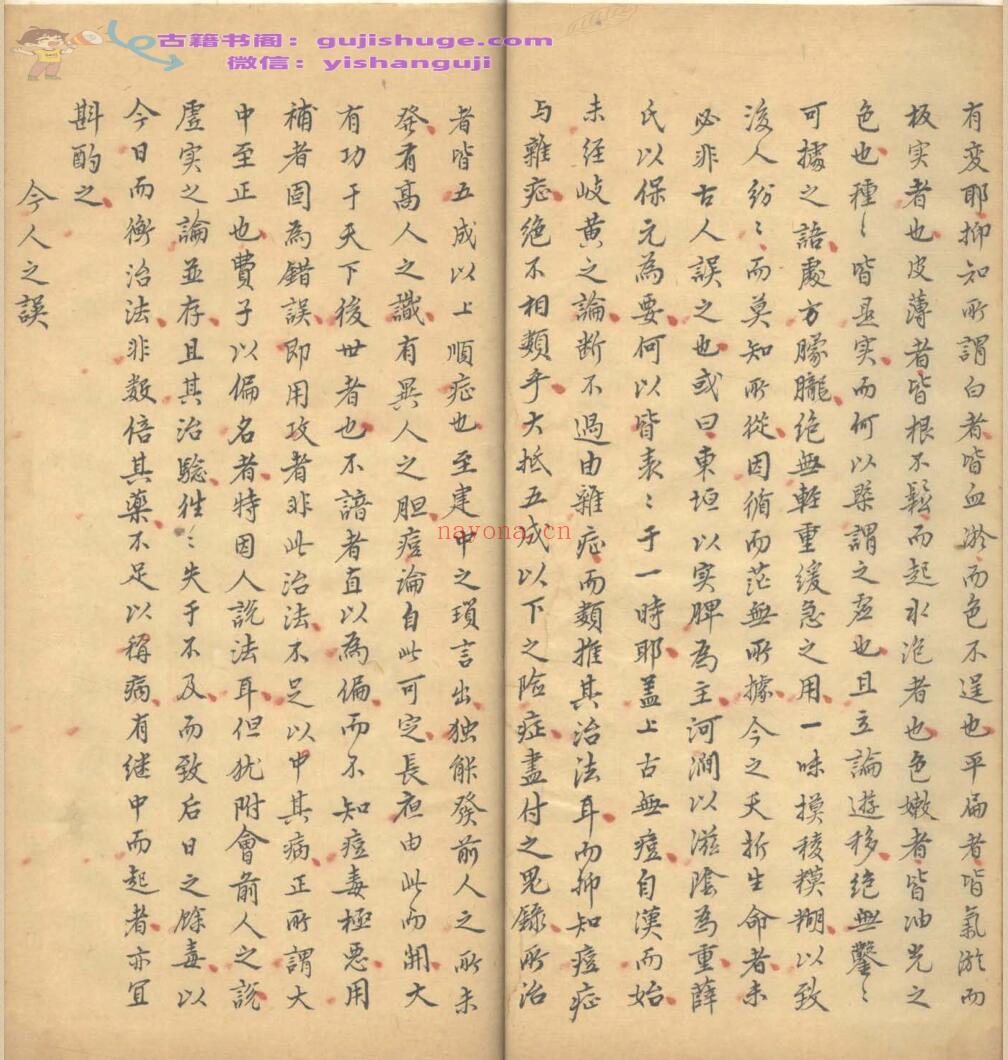 古籍书阁：gujishuge.com
微信：yishanguji
有变耶抑知所謂白者皆血淤而色不逞也平扁者皆氣淤而
板实者也皮薄者皆根不鬆而起水泡者也色嫩者皆油光之
色也種〻皆是实而何以槩謂之虚也且立論遊移絶無鑿〻
可據之語處方朦朧絶無輕重緩急之用一味摸稜糢糊以致
後人紛〻而莫知所從因循而茫無所據今之夭折生命者未
必非古人誤之也或曰東垣以实脾為主河澗以滋陰為重薛
氏以保元為要何以皆表〻于一時耶盖上古無痘自漢而始
未经岐黄之論断不過由雜症而類推其治法耳而抑知痘症
与雜症絶不相類乎大抵五成以下之险症盡付之鬼錄所治
者皆五成以上順症也至建中之瑣言出独能發前人之所未
發有高人之識有異人之胆痘論自此可定長夜由此而開大
有功于天下後世者也不諳者直以為偏而不知痘毒極恶用
補者固為錯誤即用攻者非此治法不足以中其病正所謂大
中至正也費子以偏名者特因人説法耳但犹附會前人之説
虚实之論並存且其治驗往〻失于不及而致后日之餘毒以
今日而衡治法非数倍其藥不足以稱病有继中而起者亦宜
斟酌之
今人之誤
nayona.cn